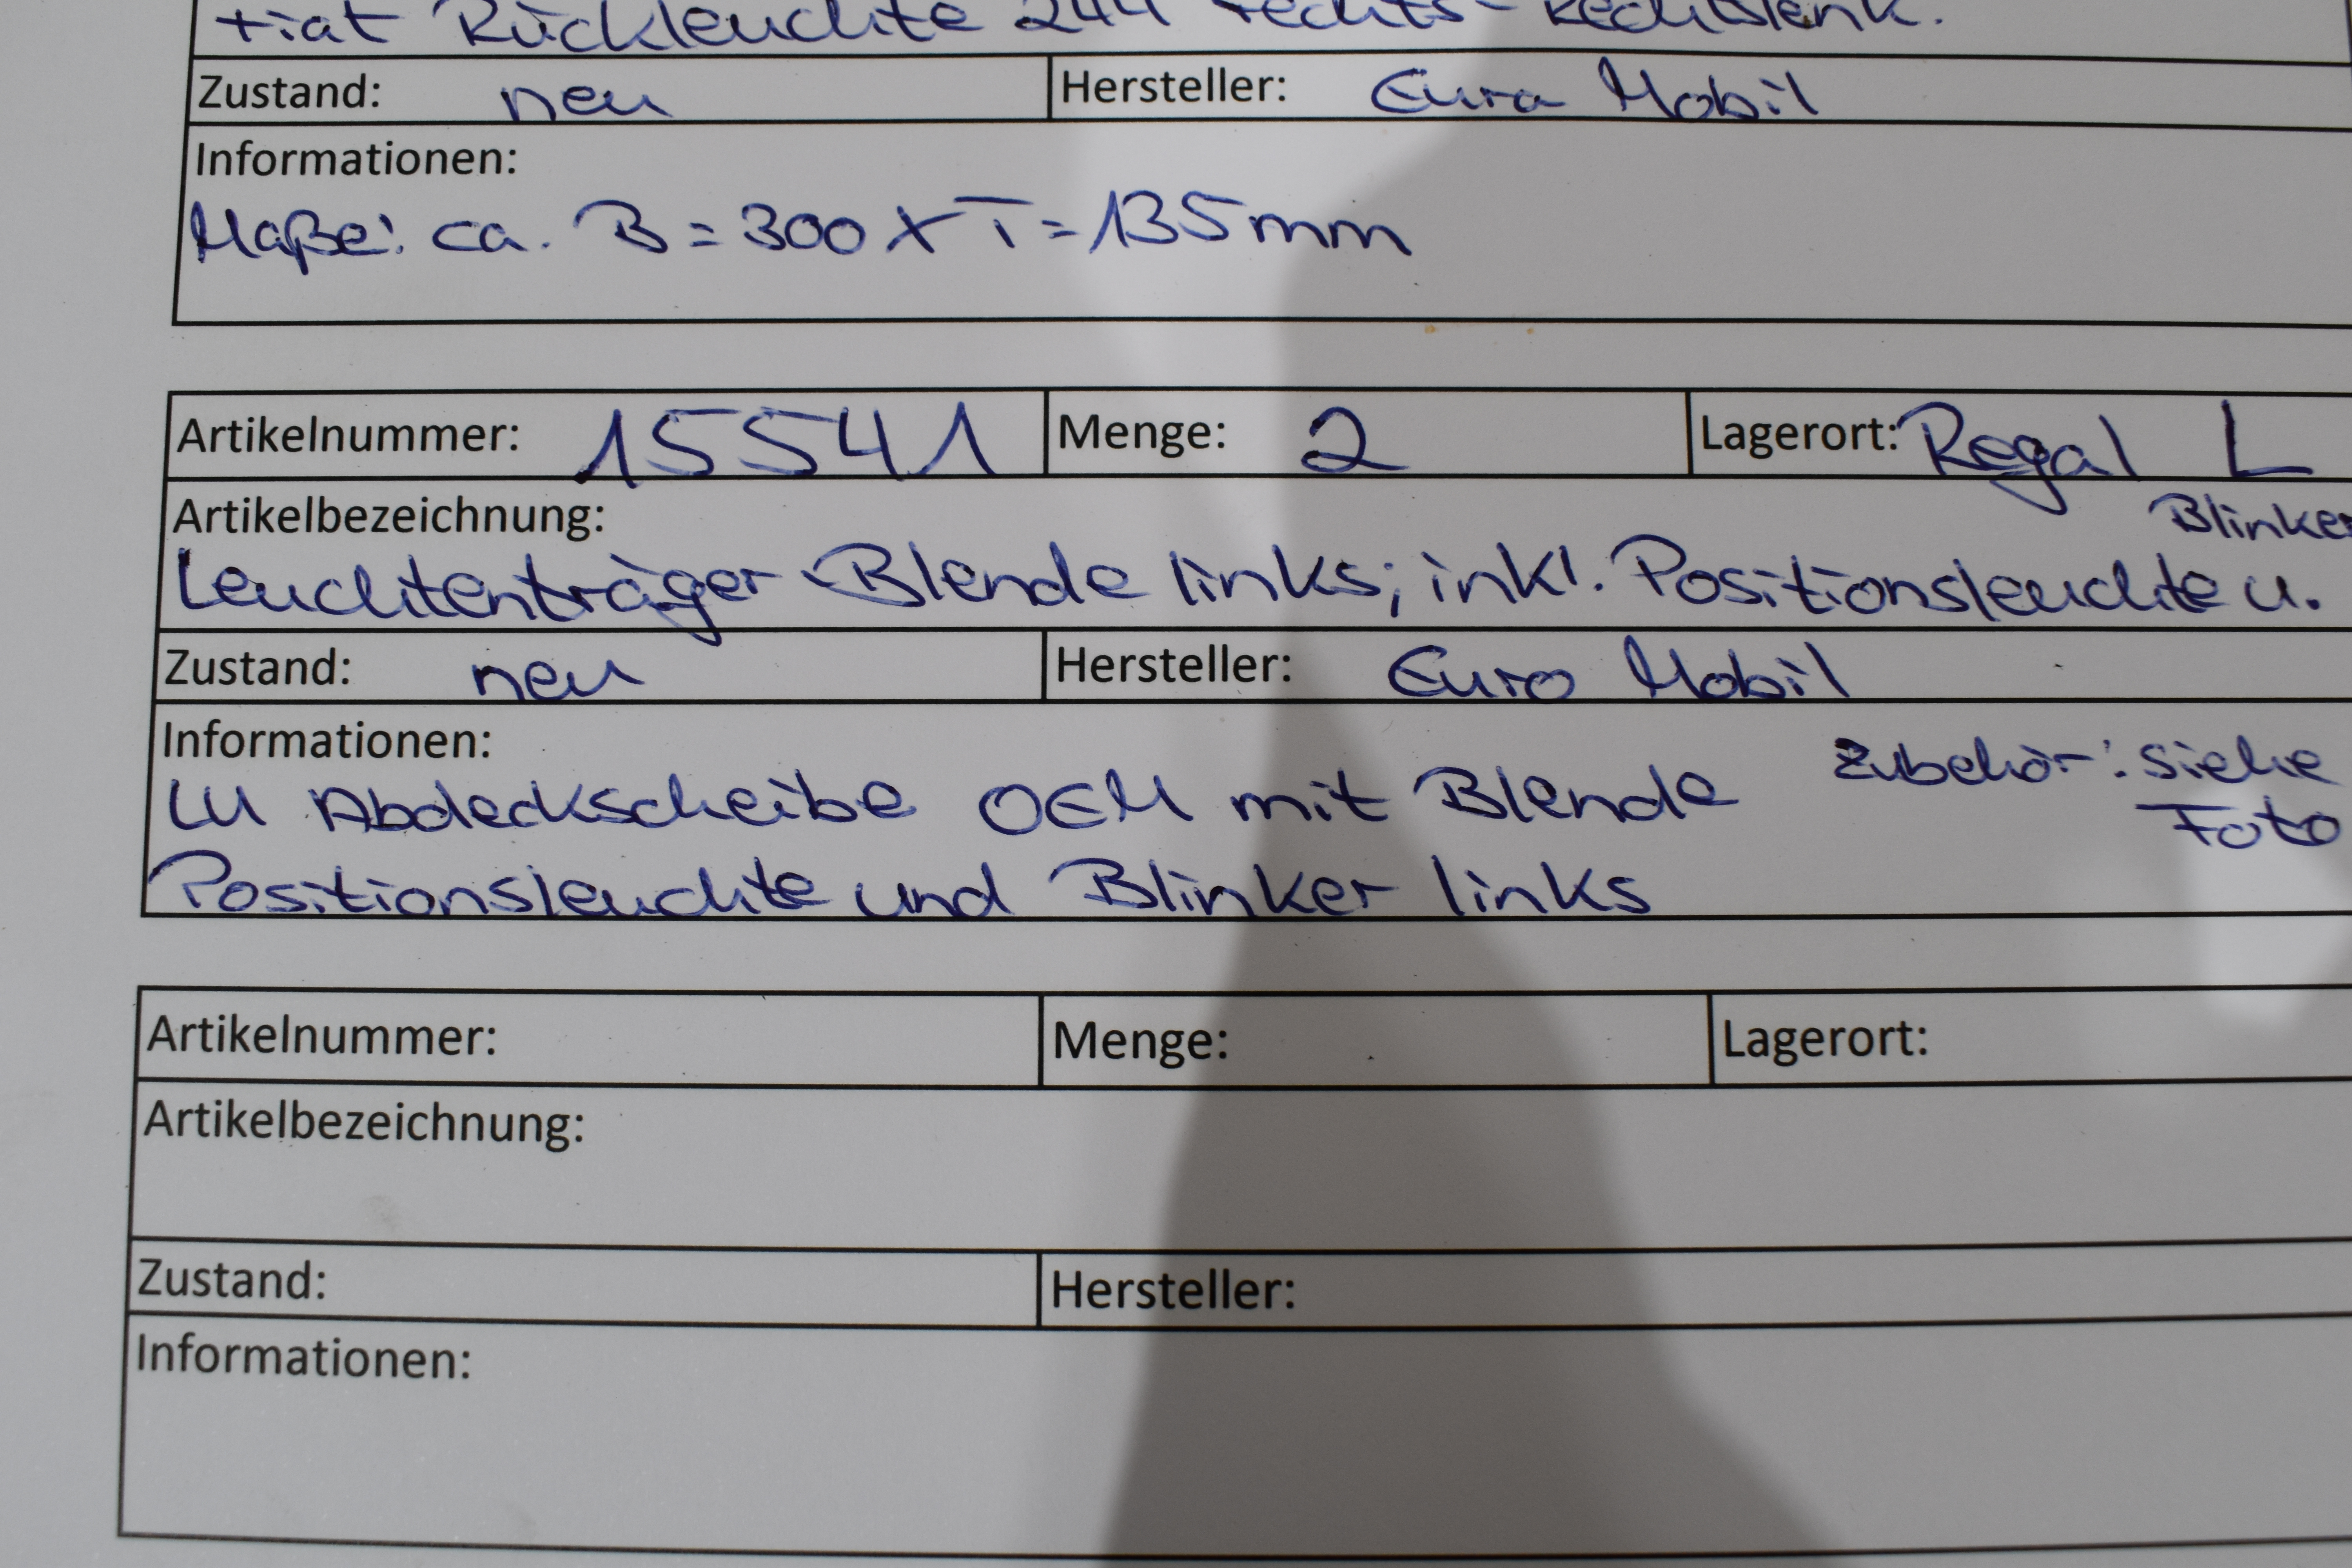 Fiat Rückleuchte 244 rechts - Rechtslenk.
Zustand: neu Hersteller: Eura Mobil
Informationen:
Maße: ca. B = 300 x T = 135 mm
Artikelnummer: 15541 Menge: 2 Lagerort: Regal L
Artikelbezeichnung: Blinker
Leuchtenträger - Blende links; inkl. Positionsleuchte u.
Zustand: neu Hersteller: Euro Mobil
Informationen: Zubehör: siehe
LU Abdeckscheibe OEM mit Blende Foto
Positionsleuchte und Blinker links
Artikelnummer: Menge: Lagerort:
Artikelbezeichnung:
Zustand: Hersteller:
Informationen: